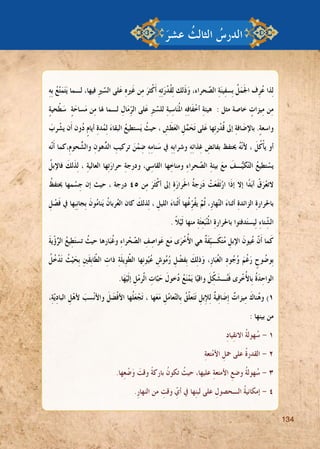 الدرسُ الثالثُ عشرَ
لِذا عُرِفَ الجَمَلُ بِسَفِينَةِ الصَحراءِ، وَذَلِكَ لِقُدْرَتِهِ أَكْثَرَ مِن غَيرِهِ عَلى السَّيْرِ فيها، لـما يَتَمَتَّعُ بِهِ
مِن مِيزاتٍ خاصةٍ مثل : هيئةِ أَخفافِهِ المُناسِبَةِ للسَّيرِ عَلى الرِّمالِ لـما لها مِن مَساحَةٍ سَطْحِيَّةٍ
واسِعةٍ. بالإضافةِ إلى قُدرتِها عَلى تَحَمُّلِ العَطَشِ ، حيثُ يَستطيعُ البقاءَ لِمُدةِ أيامٍ دُونَ أن يشْربَ
أو يَأْكُلَ ، لأَنَّهُ يحتفظ بفائضِ غِذائِهِ وشرابِهِ في سَنامِهِ ضِمْنَ تركيبِ الدهُونِ والشُّحومِ،كما أنّه
يَسْتَطِيعُ التَّكَيُّفَ معَ بيئةِ الصحراءِ ومناخِها القاسي، ودرجةِ حرارَتِها العاليةِ ، لِذلكَ فالإبلُ
لاتَعْرَقُ أبَدًا إلا إذا ارْتَفَعَتْ دَرجَةُ الحَرارَةِ إلى أَكْثَرَ مِن ٤٥ درجة ، حيث إن جسْمها يحْتَفِظُ
بالحرارةِ الزائدةِ أثناءَ النَّهارِ، ثُمَّ يُفْرِغُها أثْناءَ الليلِ ، لذلِكَ كان العُرْبانُ يَنامُونَ بجانِبِها في فَصْلِ
الشِّتاءِ، لِيستَدفئوا بالحرارةِ المُنْبَعِثَةِ منها لَيْلًا .
كما أنَّ عُيونَ الإبلِ مُتَكَيِّفَـةٌ هي الأُخْرَى مَع عَواصِفِ الصَّحْراءِ وغُبارِها حيثُ تستَطيعُ الرُّؤيَةَ
بِوضُوحٍ رَغْمَ وُجُودِ الغُبَارِ، وَذلِكَ بِفضلِ رُمُوشِ عُيُونِها الطَّويلَةِ ذاتِ الطَّابَقَيْنِ بِحَيْثُ تَدْخُلُ
الواحِدَةُ بالأُخْرى فَتُـشَكِّلُ وَاقيًا يَمْنَعُ دُخولَ حَبَّاتِ الرَّمْلِ إلَيْها.
١) وهُناكَ مِيزاتٌ إضافِيةٌ لِلإبِلِ تَتَعَلَّقُ بالتَّعامُلِ مَعَها ، تَجْعَلُها الأفْضَلَ والأنْسبَ لأهْلِ البادِيَةِ،
من بينها :
١ – سُهولَةُ الانقيادِ
٢ – القدرةُ على حملِ الأمتعةِ
٣ – سُهولةُ وضعِ الأمتعةِ عليها، حيثُ تكونُ باركةً وقتَ وَضْعِها.
٤ – إمكانيةُ السحصولِ على لبنِها في أيِّ وقتٍ من النهارِ.
134